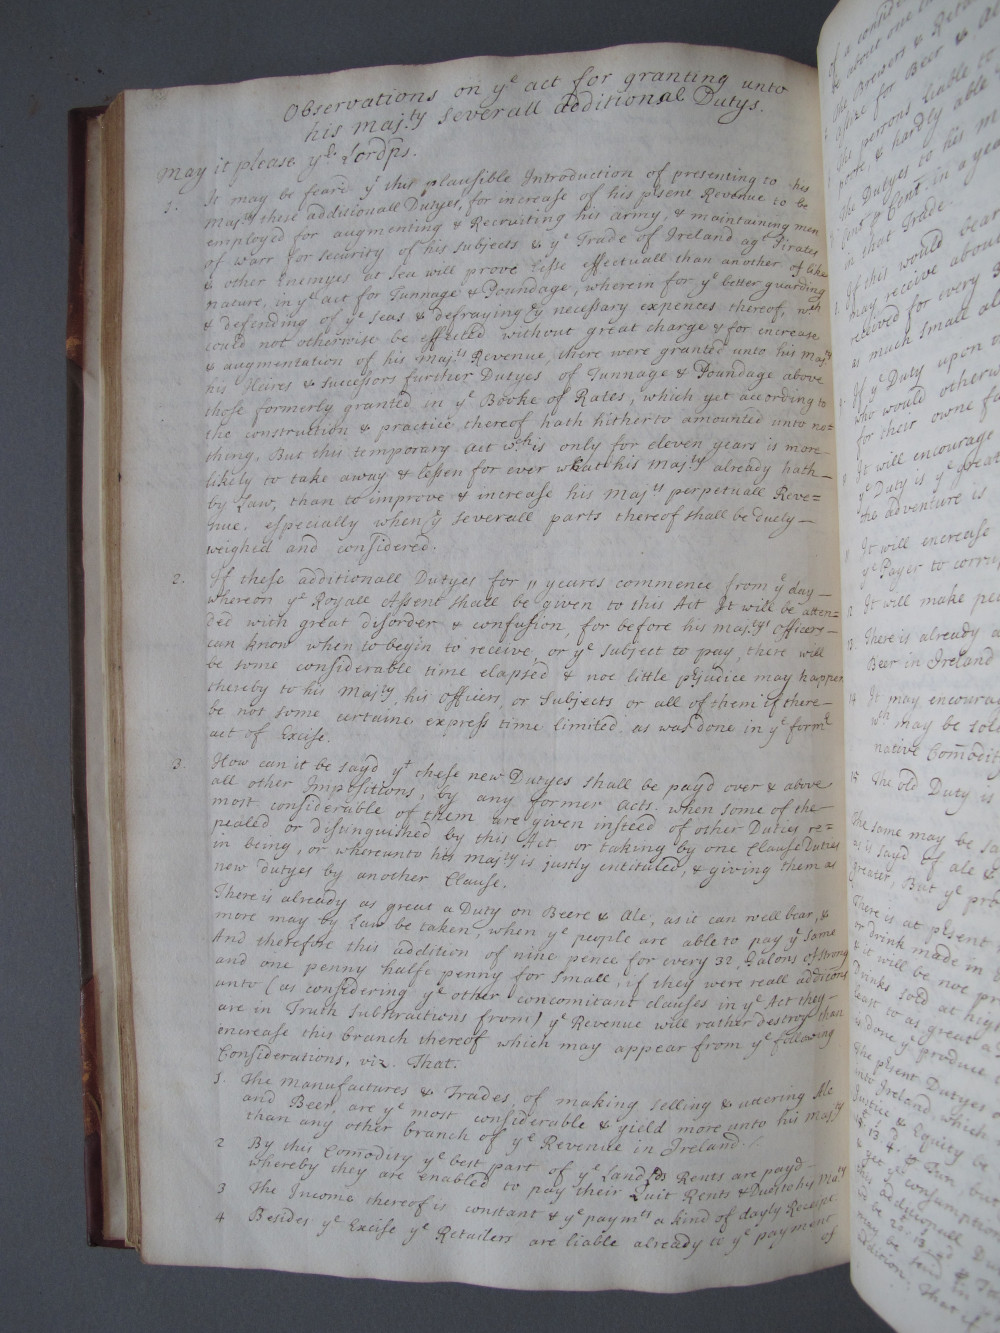 Observations on ye act for granting unto
his Majty severall additional Dutys.
May it please yor Lordps.
1. It may be feard yt this plausible Introduction of presenting to his
Majty these additionall Dutyes, for increase of his psent Revenue to be
employed for augmenting & Recruiting his army, & maintaining men
of warr for security of his subjects & ye Trade of Ireland agt Pirates
& other Enemyes at Sea will prove lesse effectuall than another of like
nature, in ye act for Tunnage & Poundage, wherein for ye better guarding
& defending of ye seas & defraying ye necessary expences thereof, wch
could not otherwise be effected without great charge & for increase
& augmentation of his Majts Revenue, there were granted unto his Majty
his Heires & Successors further Dutyes of Tunnage & Poundage above
those formerly granted in ye Booke of Rates, which yet according to
the construction & practice thereof hath hitherto amounted unto no=
thing, But this temporary act wch is only for eleven years is more
likely to take away & lessen for ever what his Majty already hath
by Law, than to improve & increase his Majts perpetuall Reve=
nue. especially when ye severall parts thereof shall be duely
weighed and considered.
2. If these additionall Dutyes for 11 yeares commence from ye day
whereon ye Royall Assent shall be given to this Act It will be atten=
ded with great disorder & confusion, for before his Majtys officers
can know when to begin to receive, or ye subject to pay, there will
be some considerable time elapsed & noe little pjudice may happen
thereby to his Majty, his officers, or Subjects or all of them if there
be not some certaine express time limited as was done in ye formr
act of Excise.
3. How can it be sayd yt these new Dutyes shall be payd over & above
all other Impositions, by any former acts. when some of the
most considerable of them are given instead of other Duties re=
pealed or distinguished by this Act, or taking by one Clause Duties
in being, or whereunto his Majty is justly entituled, & giving them as
new dutyes by another Clause.
There is already as great a Duty on Beere & Ale, as it can well bear, &
more may by Law be taken, when ye people are able to pay ye same
And therefore this addition of nine pence for every 32 Galons of strong
and one penny halfe penny for small, if they were reall additions
unto (as considering ye other concomitant clauses in ye Act they
are in Truth Substractions from) ye Revenue will rather destroy than
encrease this branch thereof which may appear from ye following
Considerations, viz. That.
1. The manufactures & Trades of making selling & uttering Ale
and Beer, are ye most considerable & yield more unto his Majty
than any other branch of ye Revenue in Ireland.
2 By this Comodity ye best part of ye Landlds Rents are payd
whereby they are enabled to pay their Quit Rents & Dues to his Majty
3 The Income thereof is constant & ye paymts a kind of dayly Receipt
4 Besides ye Excise ye Retailers are liable already to ye payment
of
of a consider
be about one
the Brewers & Reta
Assize for Beer & Al
The persons liable to
poore & hardly able
The Dutyes to his M
Cent p Cent. in a yea
in that Trade
If this would bear
may receive about
received for every
as much small al
If ye Duty upon
who would otherw
for their owne fa
It will encourage
ye Duty is ye great
the adventure is
11 It will encrease
ye Payer to corrup
12 It will make peo
13. There is already a
Beer in Ireland
14 It may encourag
wch may be sold
native Comodity
15 The old Duty is
The same may be sa
as is sayd of ale &
greater, But ye pro
There is at psent
or drink made in
& it will be noe pr
drinks sold at high
least to as great a
is done ye produce
The psent Dutyes
into Ireland which
Justice & Equity be
ye consumption
this additionall Du
may be
addition. That if